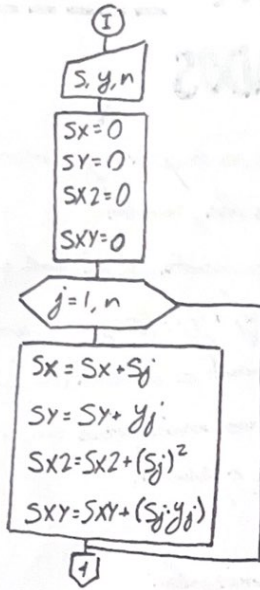 I
S, y, n
SX=0
SY=0
SX2=0
SXY=0
j=1, n
SX = SX+Sj
SY = SY+ yj
SX2=SX2+(Sj)²
SXY=SXY+(Sj·yj)
1